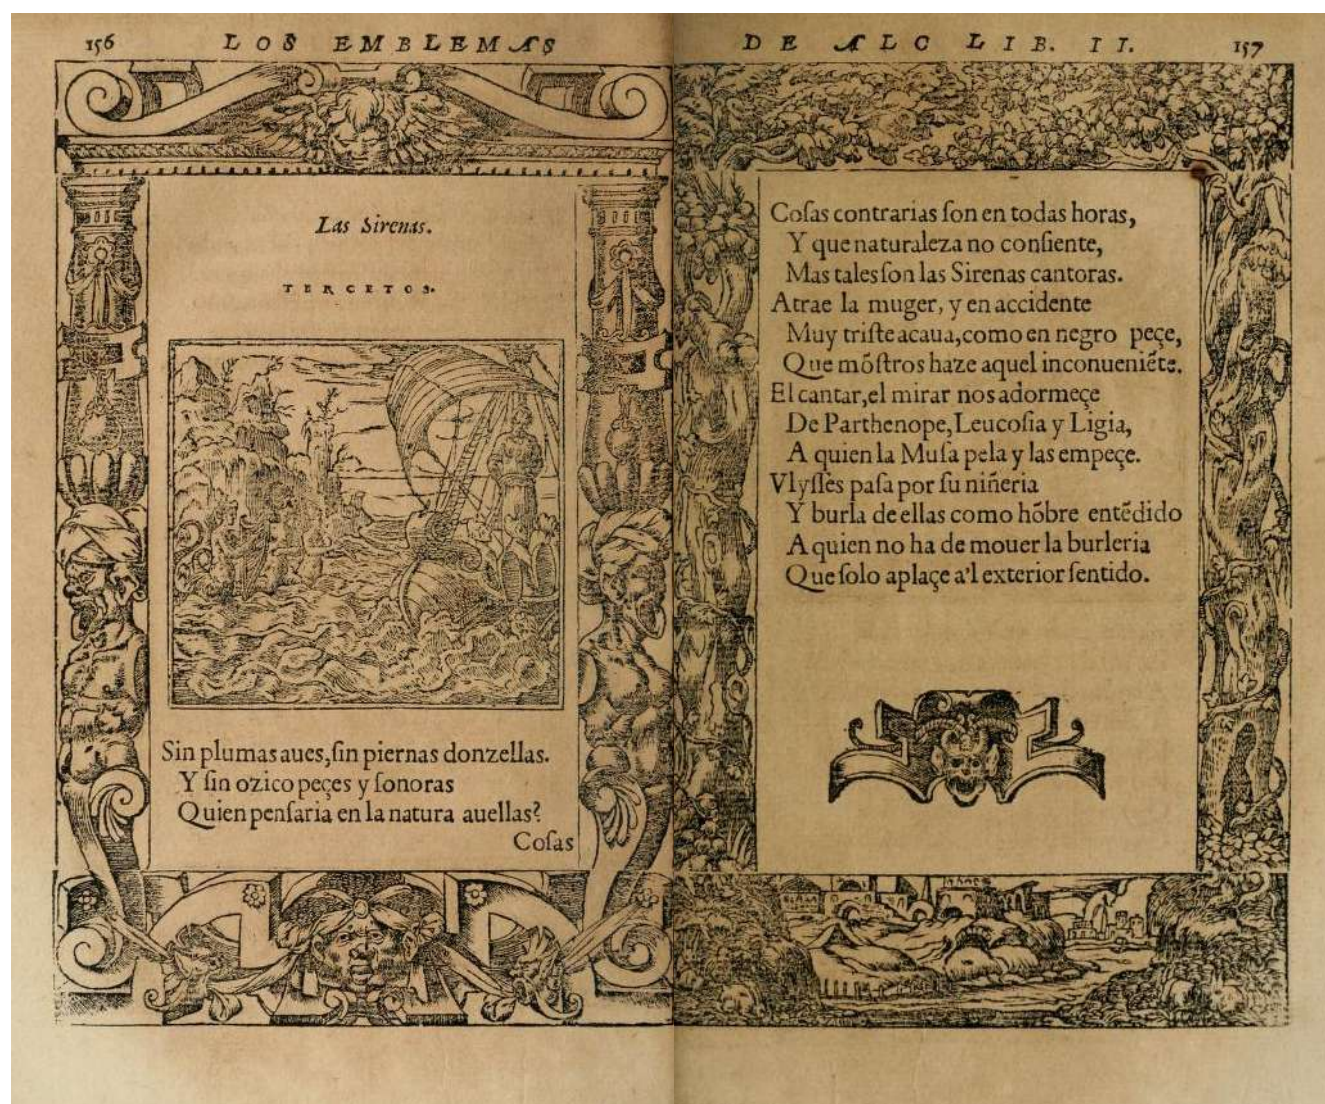 156 LOS EMBLEMAS
Las Sirenas.
TERCETOS.
Sin plumas aues, ſin piernas donzellas.
Y ſin ozico peçes y ſonoras
Quien penſaria en la natura auellas?
Coſas
DE ALC LIB. II. 157
Coſas contrarias ſon en todas horas,
Y que naturaleza no conſiente,
Mas tales ſon las Sirenas cantoras.
Atrae la muger, y en accidente
Muy triſte acaua, como en negro peçe,
Que mõſtros haze aquel inconueniẽte.
El cantar, el mirar nos adormeçe
De Parthenope, Leucoſia y Ligia,
A quien la Muſa pela y las empeçe.
Vlyſſes paſa por ſu niñeria
Y burla de ellas como hõbre entẽdido
A quien no ha de mouer la burleria
Que ſolo aplaçe a'l exterior ſentido.